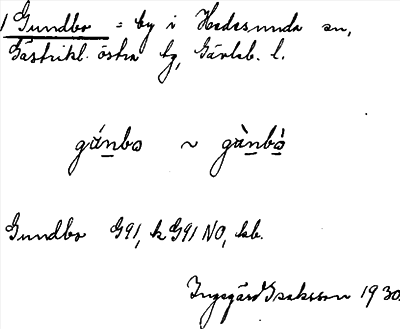 1 Gundbo = by i Hedesunda sn,
Gästrikl. östra tg, Gävleb. l.
gánbo ~ gànbò
Gundbo G91, k G91 NO, kb.
Ingegärd Isaksson 1930